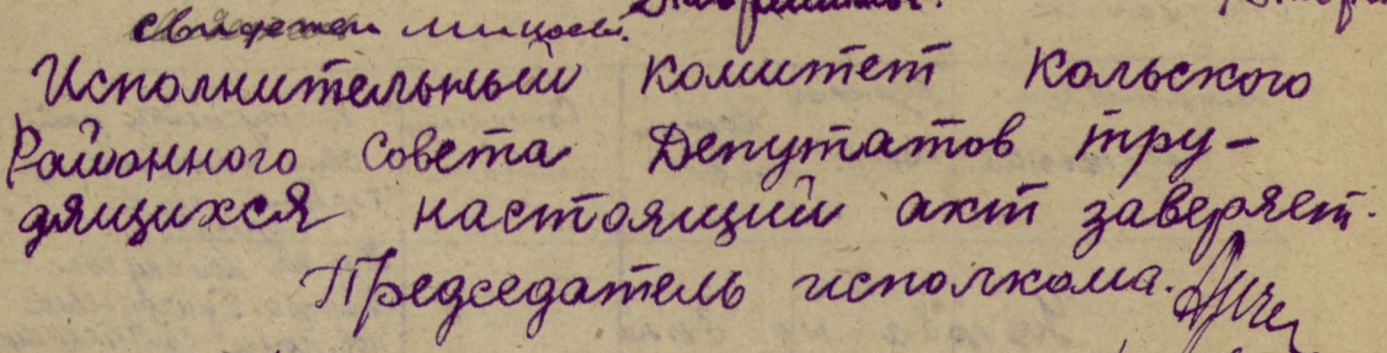 Исполнительный комитет Кольского
Районного Совета Депутатов тру-
дящихся настоящий акт заверяет.
Председатель исполкома.